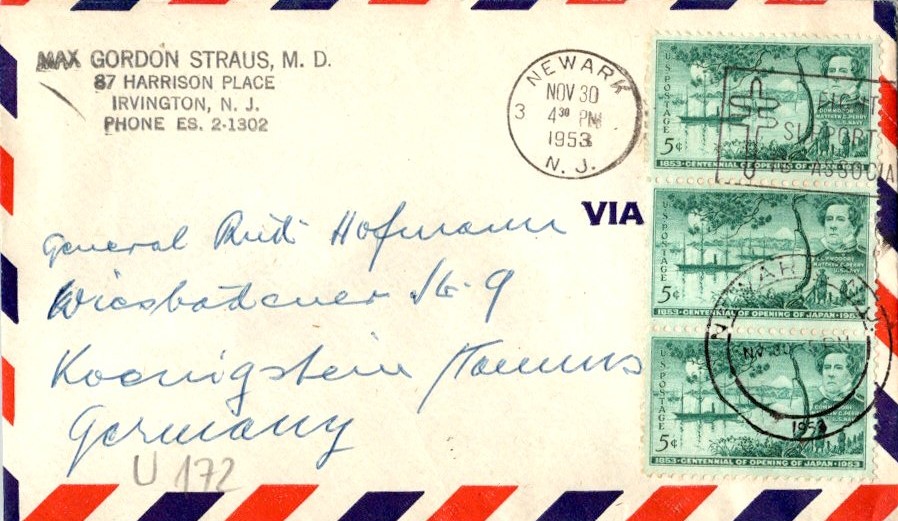 MAX GORDON STRAUS, M. D.
87 HARRISON PLACE
IRVINGTON, N. J.
PHONE ES. 2-1302
NEWARK
3
NOV 30
4 30 PM
1953
N. J.
VIA
General Rudi Hofmann
Wiesbadener Str. 9
Koenigstein /Taunus
Germany
U 172
U.S. POSTAGE
5¢
COMMODORE
MATTHEW C. PERRY
U.S. NAVY
1853·CENTENNIAL OF OPENING OF JAPAN·1953
FIGHT
SUPPORT
ASSOCIA
U.S. POSTAGE
5¢
COMMODORE
MATTHEW C. PERRY
U.S. NAVY
1853·CENTENNIAL OF OPENING OF JAPAN·1953
NEWARK
NOV 30
1953
U.S. POSTAGE
5¢
COMMODORE
MATTHEW C. PERRY
U.S. NAVY
1853·CENTENNIAL OF OPENING OF JAPAN·1953